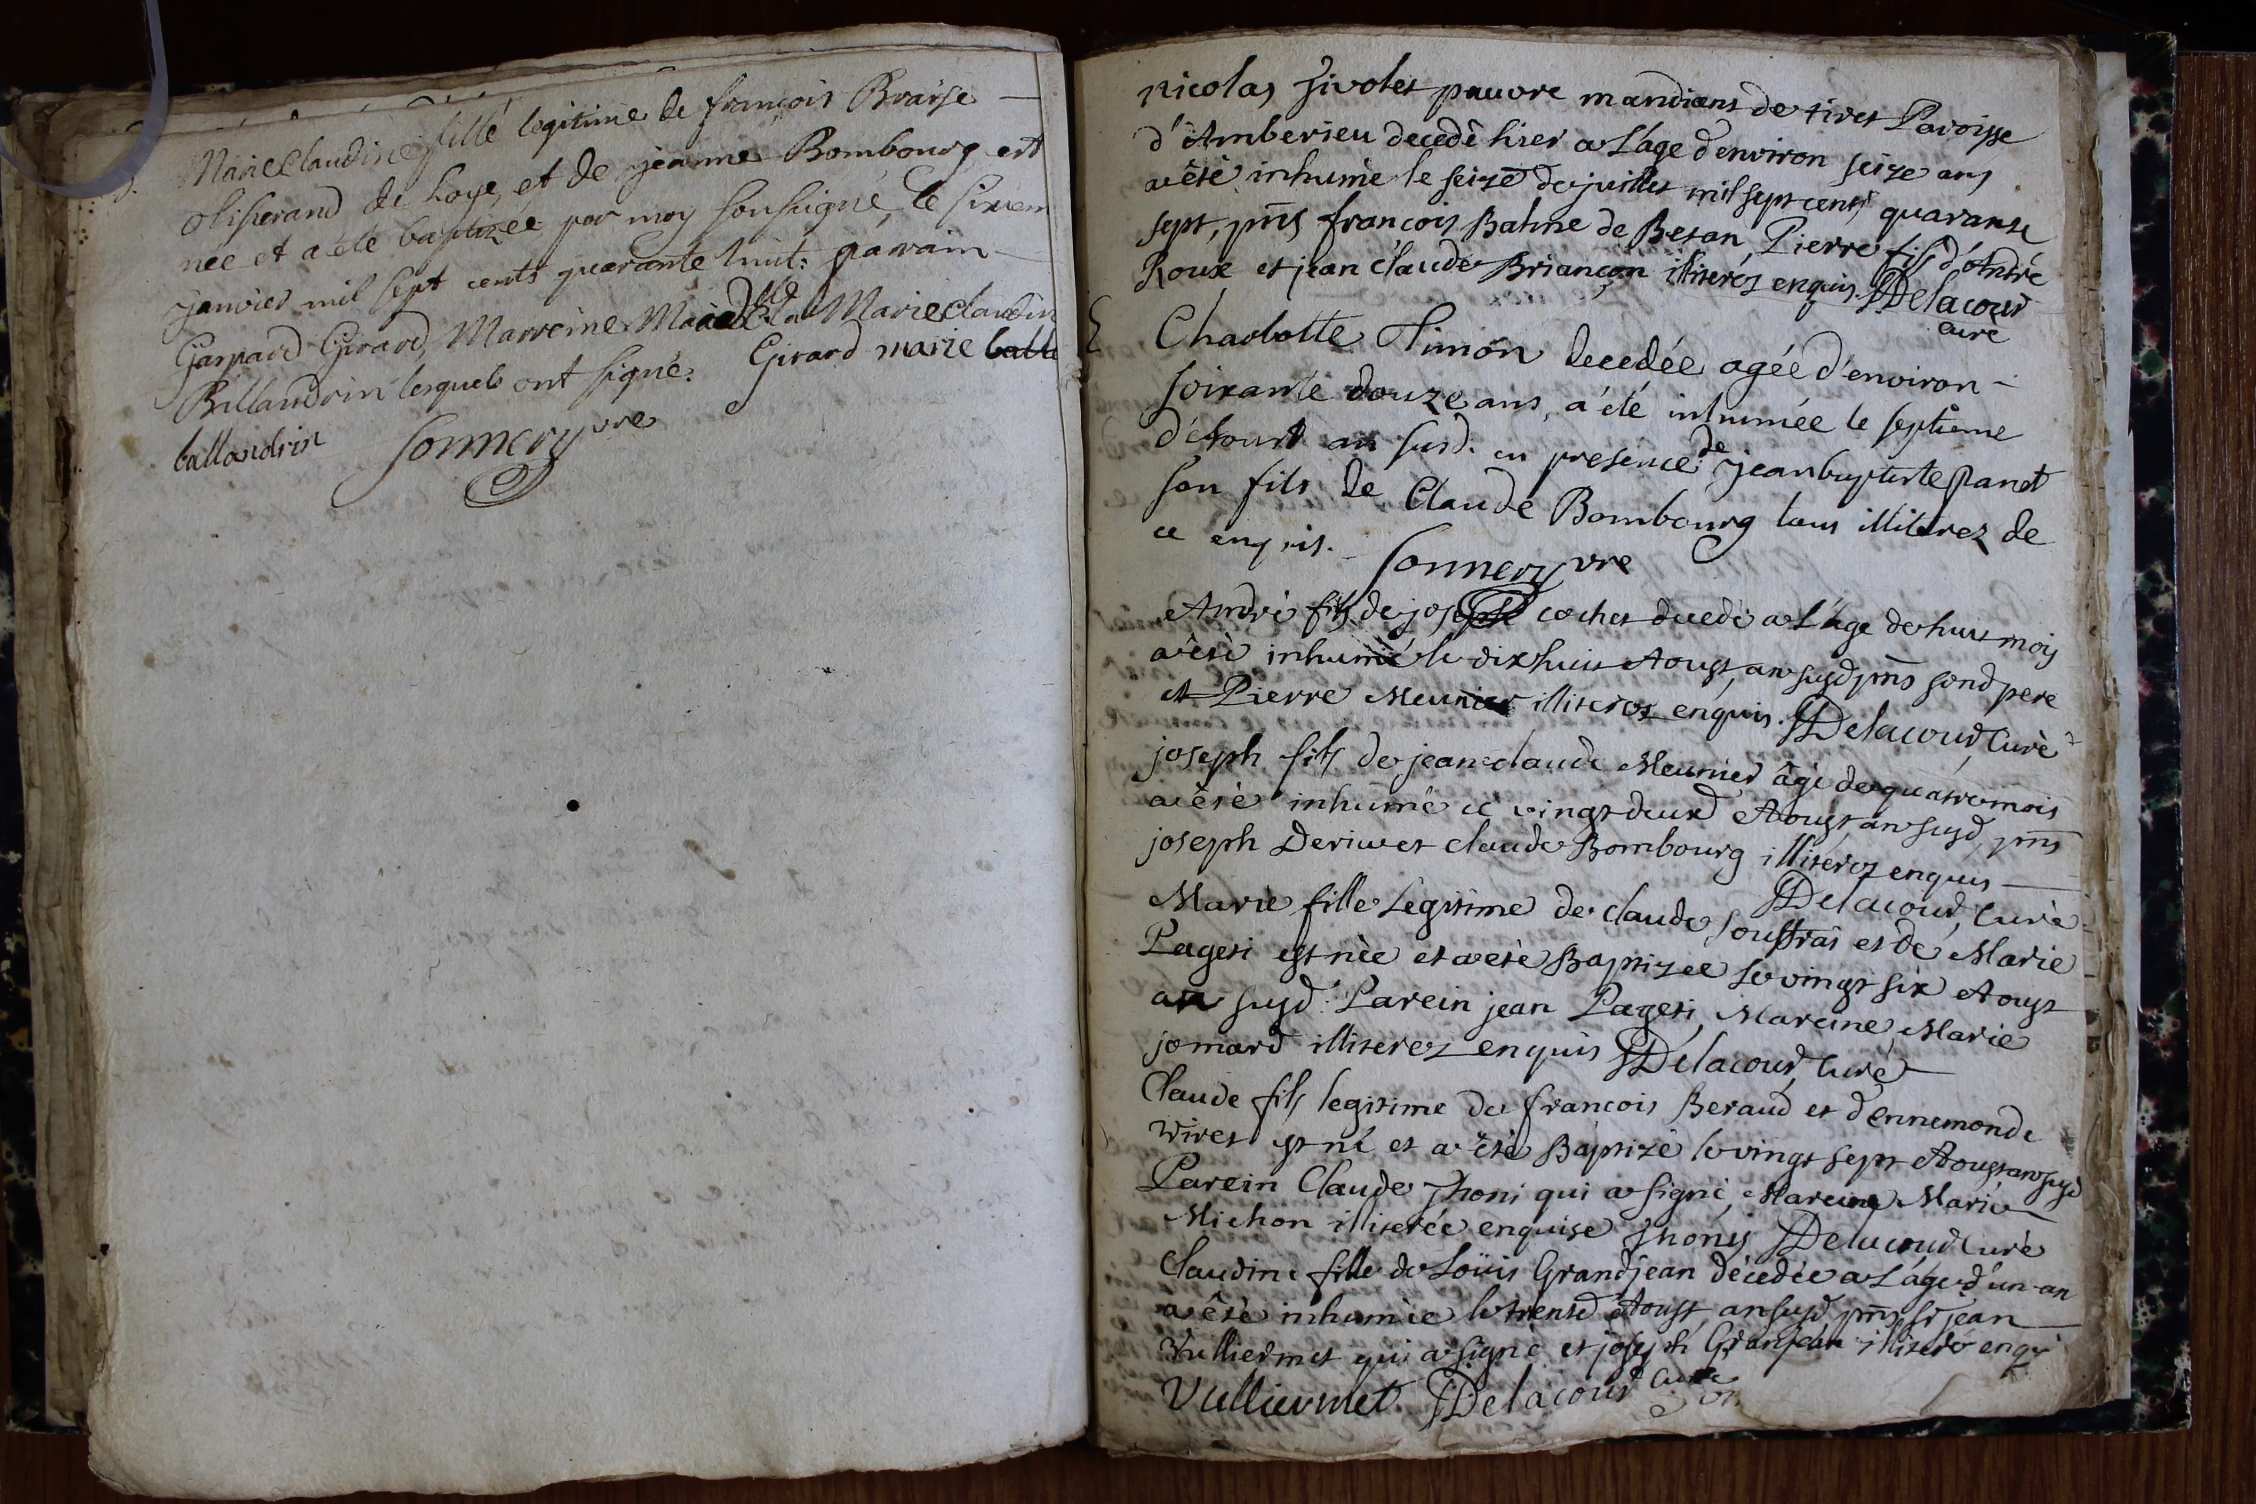 Marie Claudine fille legitime de françois Braise
de Loye, et de jeanne Bombourg est
née et a été baptizée par moy soussigné, le sixiem
janvier mil sept cents quarante huit: parrain
Gaspard Girard, Marreine Marie Claudin
Billandrin lesquels ont signé. Girard marie balla
ballandrin Sonnery vre
Nicolas pauvre mandiant de tiret Paroisse
d'Amberieu decedè hier a L'age d'environ seize ans
a étè inhumè le seize de juillet mil sept cents quarante
sept, pnts francois Balme de Betan Pierre fils d'Andrè
Roux et jean claude Briançon illiterez enquis. Delacour
curè
Charlotte Simon decedée agée d'environ
soixante douze ans, a été inhumée le septieme
d'aoust an susd. en presence de jean baptiste Panet
son fils de Claude Bombourg tous illiterez de
ce enquis. Sonnery vre
Andrè fils de joseph cochet decedè a L'age de huit mois
a étè inhumé le dix huit Aoust an susd pnts sond pere
et Pierre Meunier illiterez enquis. Delacour Curè
joseph fils de jean claude Meunier âgè de quatre mois
a étè inhumé le vingt deux Aoust an susd, pnts
joseph Derivet claude Bombourg illiterez enquis
Delacour, Curè
Marie fille Legitime de claude, Souffras et de Marie
Pageti est nèe et a étè Baptizee le vingt six Aoust
an susd. Parein jean Pageti, Mareine, Marie
jomard illiterez enquis Delacour, Curé
Claude fils legitime de francois Beraud et d'ennemonde
viret est né et a étè Baptizè le vingt sept Aoust an susd
Parein Claude Thoni qui a signé, Mareine Marie
Michon illiterée enquise Thonis Delacour Curè
Claudine fille de Loüis Grandjean décedèe a L'àge d'un an
a étè inhumèe le trente Aoust, an susd pnts sr jean
Vulliermet qui a signé et joseph Granjean illiteré enqs
Vulliermet. Delacour Curé